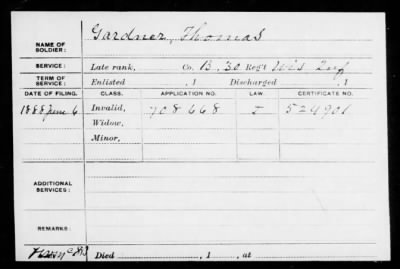 Gardner, Thomas
NAME OF SOLDIER:
SERVICE: Late rank, Co. B, 30 Reg't Wis Inf
TERM OF SERVICE: Enlisted , 1 Discharged , 1
DATE OF FILING. CLASS. APPLICATION NO. LAW. CERTIFICATE NO.
1888 June 6 Invalid, 708 668 524901
Widow,
Minor,
ADDITIONAL SERVICES:
REMARKS:
Died , 1 , at